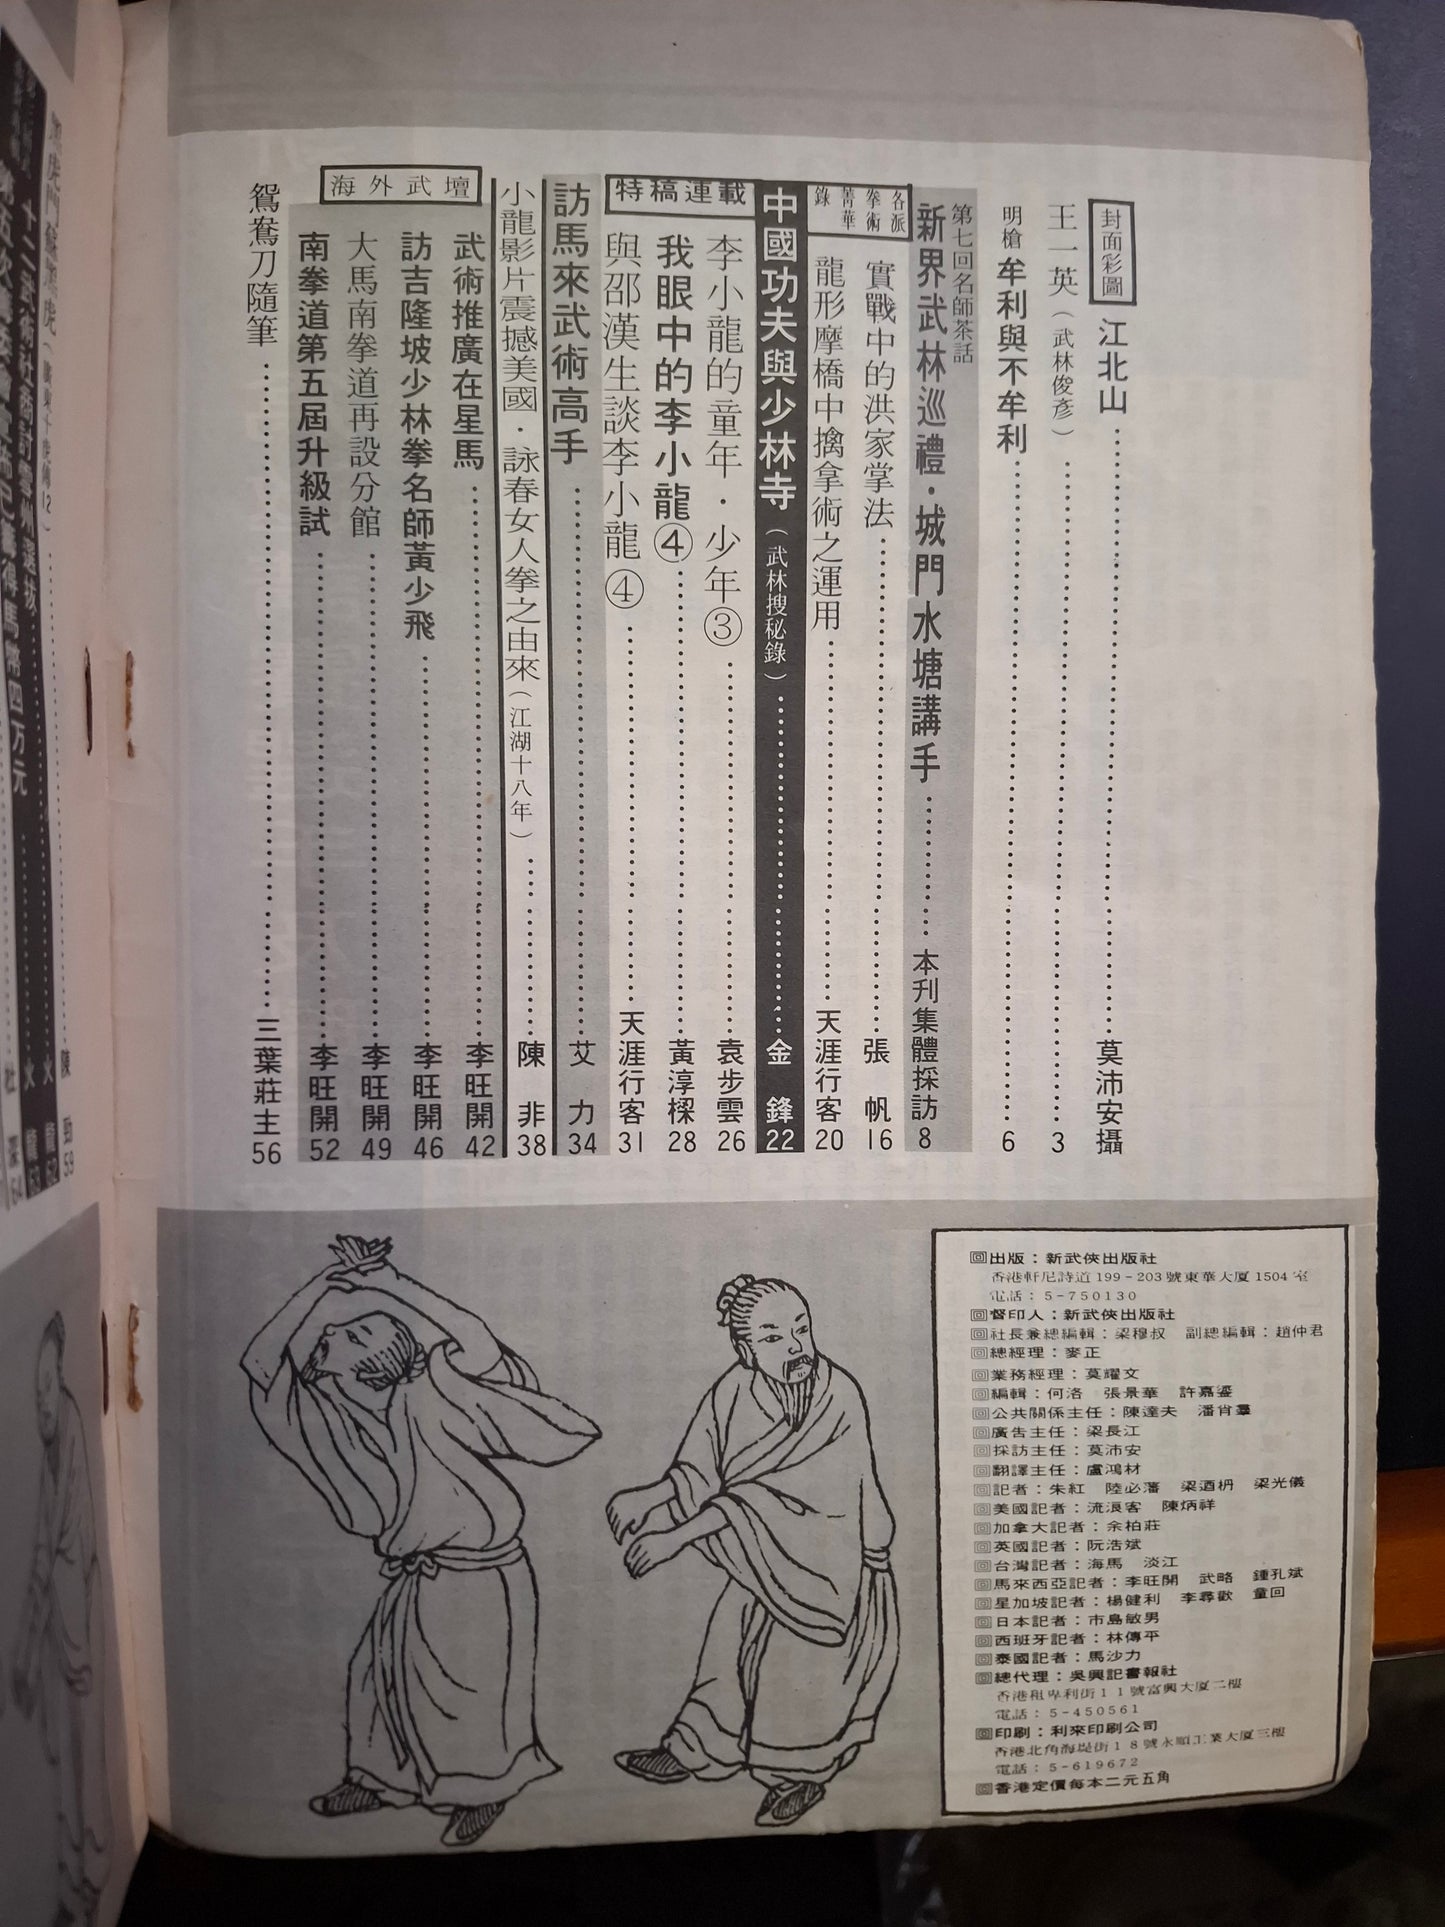 封面彩圖
江北山……莫沛安攝
王一英（武林俊彥）……3
明槍 牟利與不牟利……6
第七回名師茶話
新界武林巡禮．城門水塘講手……本刊集體採訪8
各派拳術菁華錄
實戰中的洪家掌法……張 帆16
龍形摩橋中擒拿術之運用……天涯行客20
中國功夫與少林寺（武林搜秘錄）……金 鋒22
特稿連載
李小龍的童年．少年③……袁步雲26
我眼中的李小龍④……黃淳樑28
與邵漢生談李小龍④……天涯行客31
訪馬來武術高手……艾 力34
小龍影片震撼美國．詠春女人拳之由來（江湖十八年）……陳 非38
海外武壇
武術推廣在星馬……李旺開42
訪吉隆坡少林拳名師黃少飛……李旺開46
大馬南拳道再設分館……李旺開49
南拳道第五屆升級試……李旺開52
鴛鴦刀隨筆……三葉莊主56
回出版：新武俠出版社
香港軒尼詩道199-203號東華大厦1504室
電話：5-750130
回督印人：新武俠出版社
回社長兼總編輯：梁穆叔 副總編輯：趙仲君
回總經理：麥正
回業務經理：莫耀文
回編輯：何洛 張景華 許嘉鎏
回公共關係主任：陳達夫 潘肖羣
回廣告主任：梁長江
回採訪主任：莫沛安
回翻譯主任：盧鴻材
回記者：朱紅 陸必藩 梁酒枬 梁光儀
回美國記者：流浪客 陳炳祥
回加拿大記者：余柏莊
回英國記者：阮浩斌
回台灣記者：海馬 淡江
回馬來西亞記者：李旺開 武略 鍾孔斌
回星加坡記者：楊健利 李尋歡 童回
回日本記者：市島敏男
回西班牙記者：林傳平
回泰國記者：馬沙力
回總代理：吳興記書報社
香港租卑利街11號富興大厦二樓
電話：5-450561
回印刷：利來印刷公司
香港北角海堤街18號永順工業大厦三樓
電話：5-619672
回香港定價每本二元五角